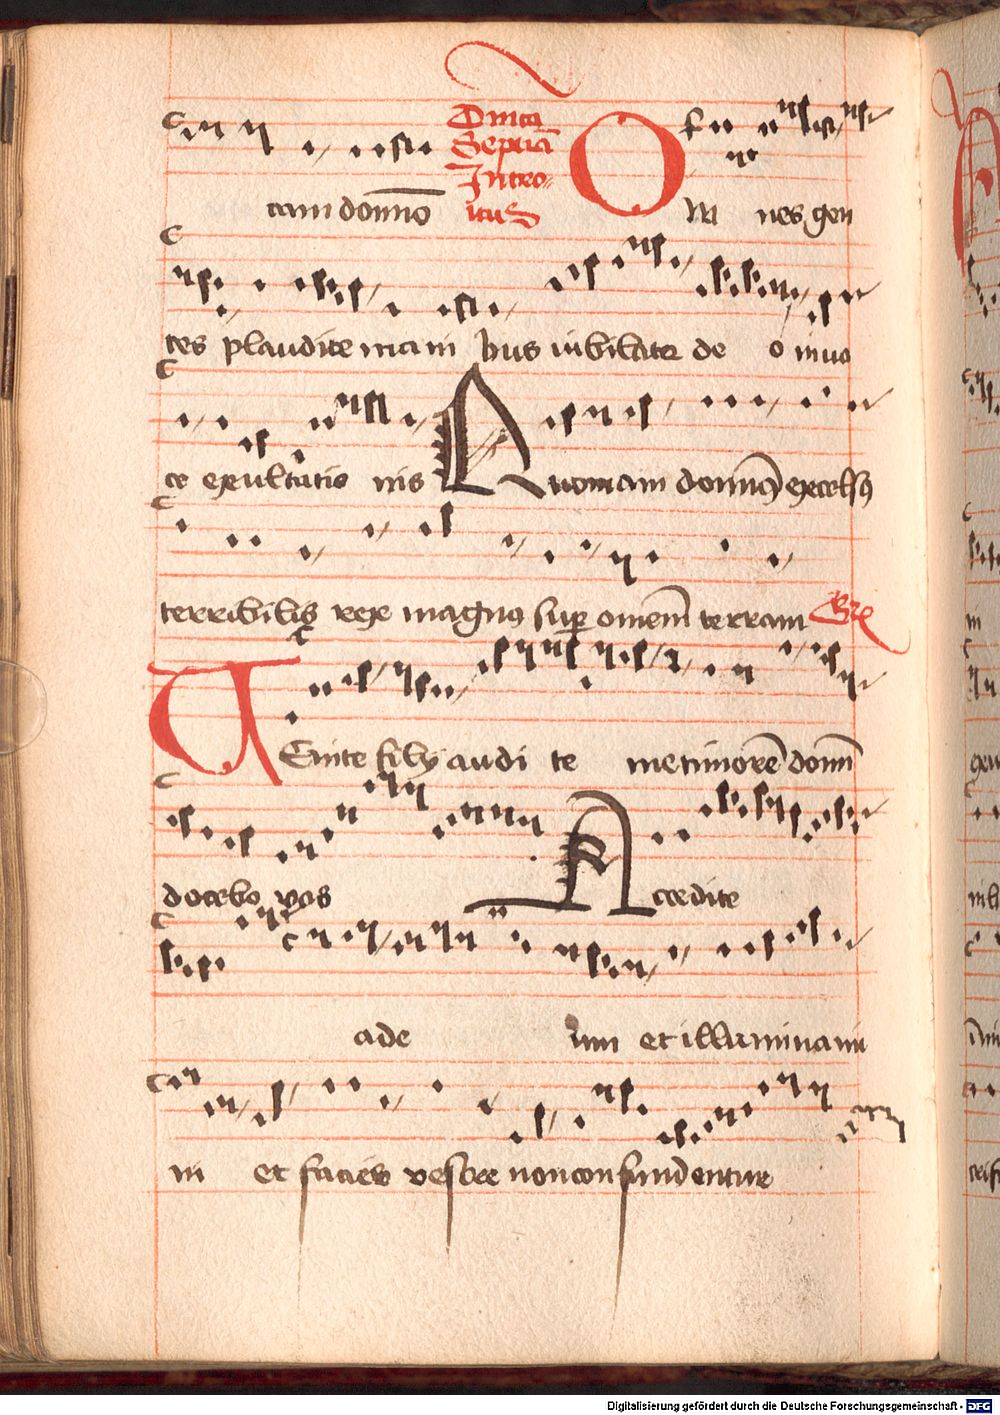 tam domino
Dnica
Septiā
Intro-
itus
Om nes gen
tes plaudite mani bus iubilate de o in uo
ce exultatio nis Quoniam dominus excelsus
terribilis rex magnus super omnem terram Gre
Venite filij audi te me timorē domī
docebo vos Accedite
ade um et illuminami
ni et facies vestre non confundentur
Digitalisierung gefördert durch die Deutsche Forschungsgemeinschaft - DFG